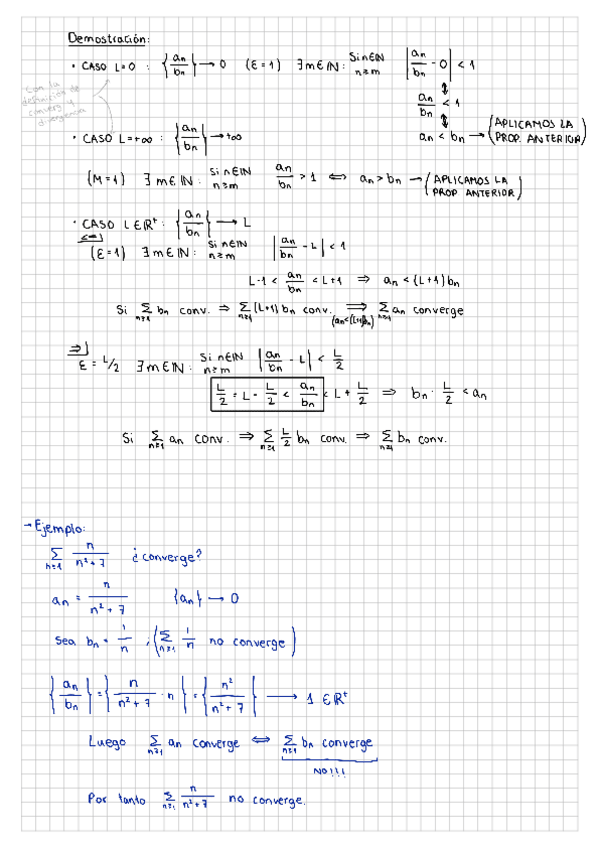 Demostración:
· CASO L=0 : {an/bn} → 0 (ε=1) ∃m∈ℕ: Si n∈ℕ n≥m |an/bn - 0| < 1
con la definición de converg y divergencia
↕
an/bn < 1
↕
an < bn → (APLICAMOS LA PROP. ANTERIOR)
· CASO L=+∞ : {an/bn} → +∞
(M=1) ∃m∈ℕ: Si n∈ℕ n≥m an/bn > 1 ⇔ an > bn → (APLICAMOS LA PROP ANTERIOR)
· CASO L∈ℝ⁺ : {an/bn} → L
<=|
(ε=1) ∃m∈ℕ: Si n∈ℕ n≥m |an/bn - L| < 1
L-1 < an/bn < L+1 ⇒ an < (L+1)bn
Si Σ n≥1 bn conv. ⇒ Σ n≥1 (L+1) bn conv. ⇒ (an<(L+1)bn) Σ n≥1 an converge
=>|
ε = L/2 ∃m∈ℕ: Si n∈ℕ n≥m |an/bn - L| < L/2
L/2 = L - L/2 < an/bn < L + L/2 ⇒ bn · L/2 < an
Si Σ n≥1 an conv. ⇒ Σ n≥1 L/2 bn conv. ⇒ Σ n≥1 bn conv.
→ Ejemplo:
Σ n≥1 n/(n²+7) ¿converge?
an = n/(n²+7) {an} → 0
Sea bn = 1/n , (Σ n≥1 1/n no converge)
{an/bn} = {n/(n²+7) · n} = {n²/(n²+7)} → 1 ∈ℝ⁺
Luego Σ n≥1 an converge ⇔ Σ n≥1 bn converge
NO!!!
Por tanto Σ n≥1 n/(n²+7) no converge.